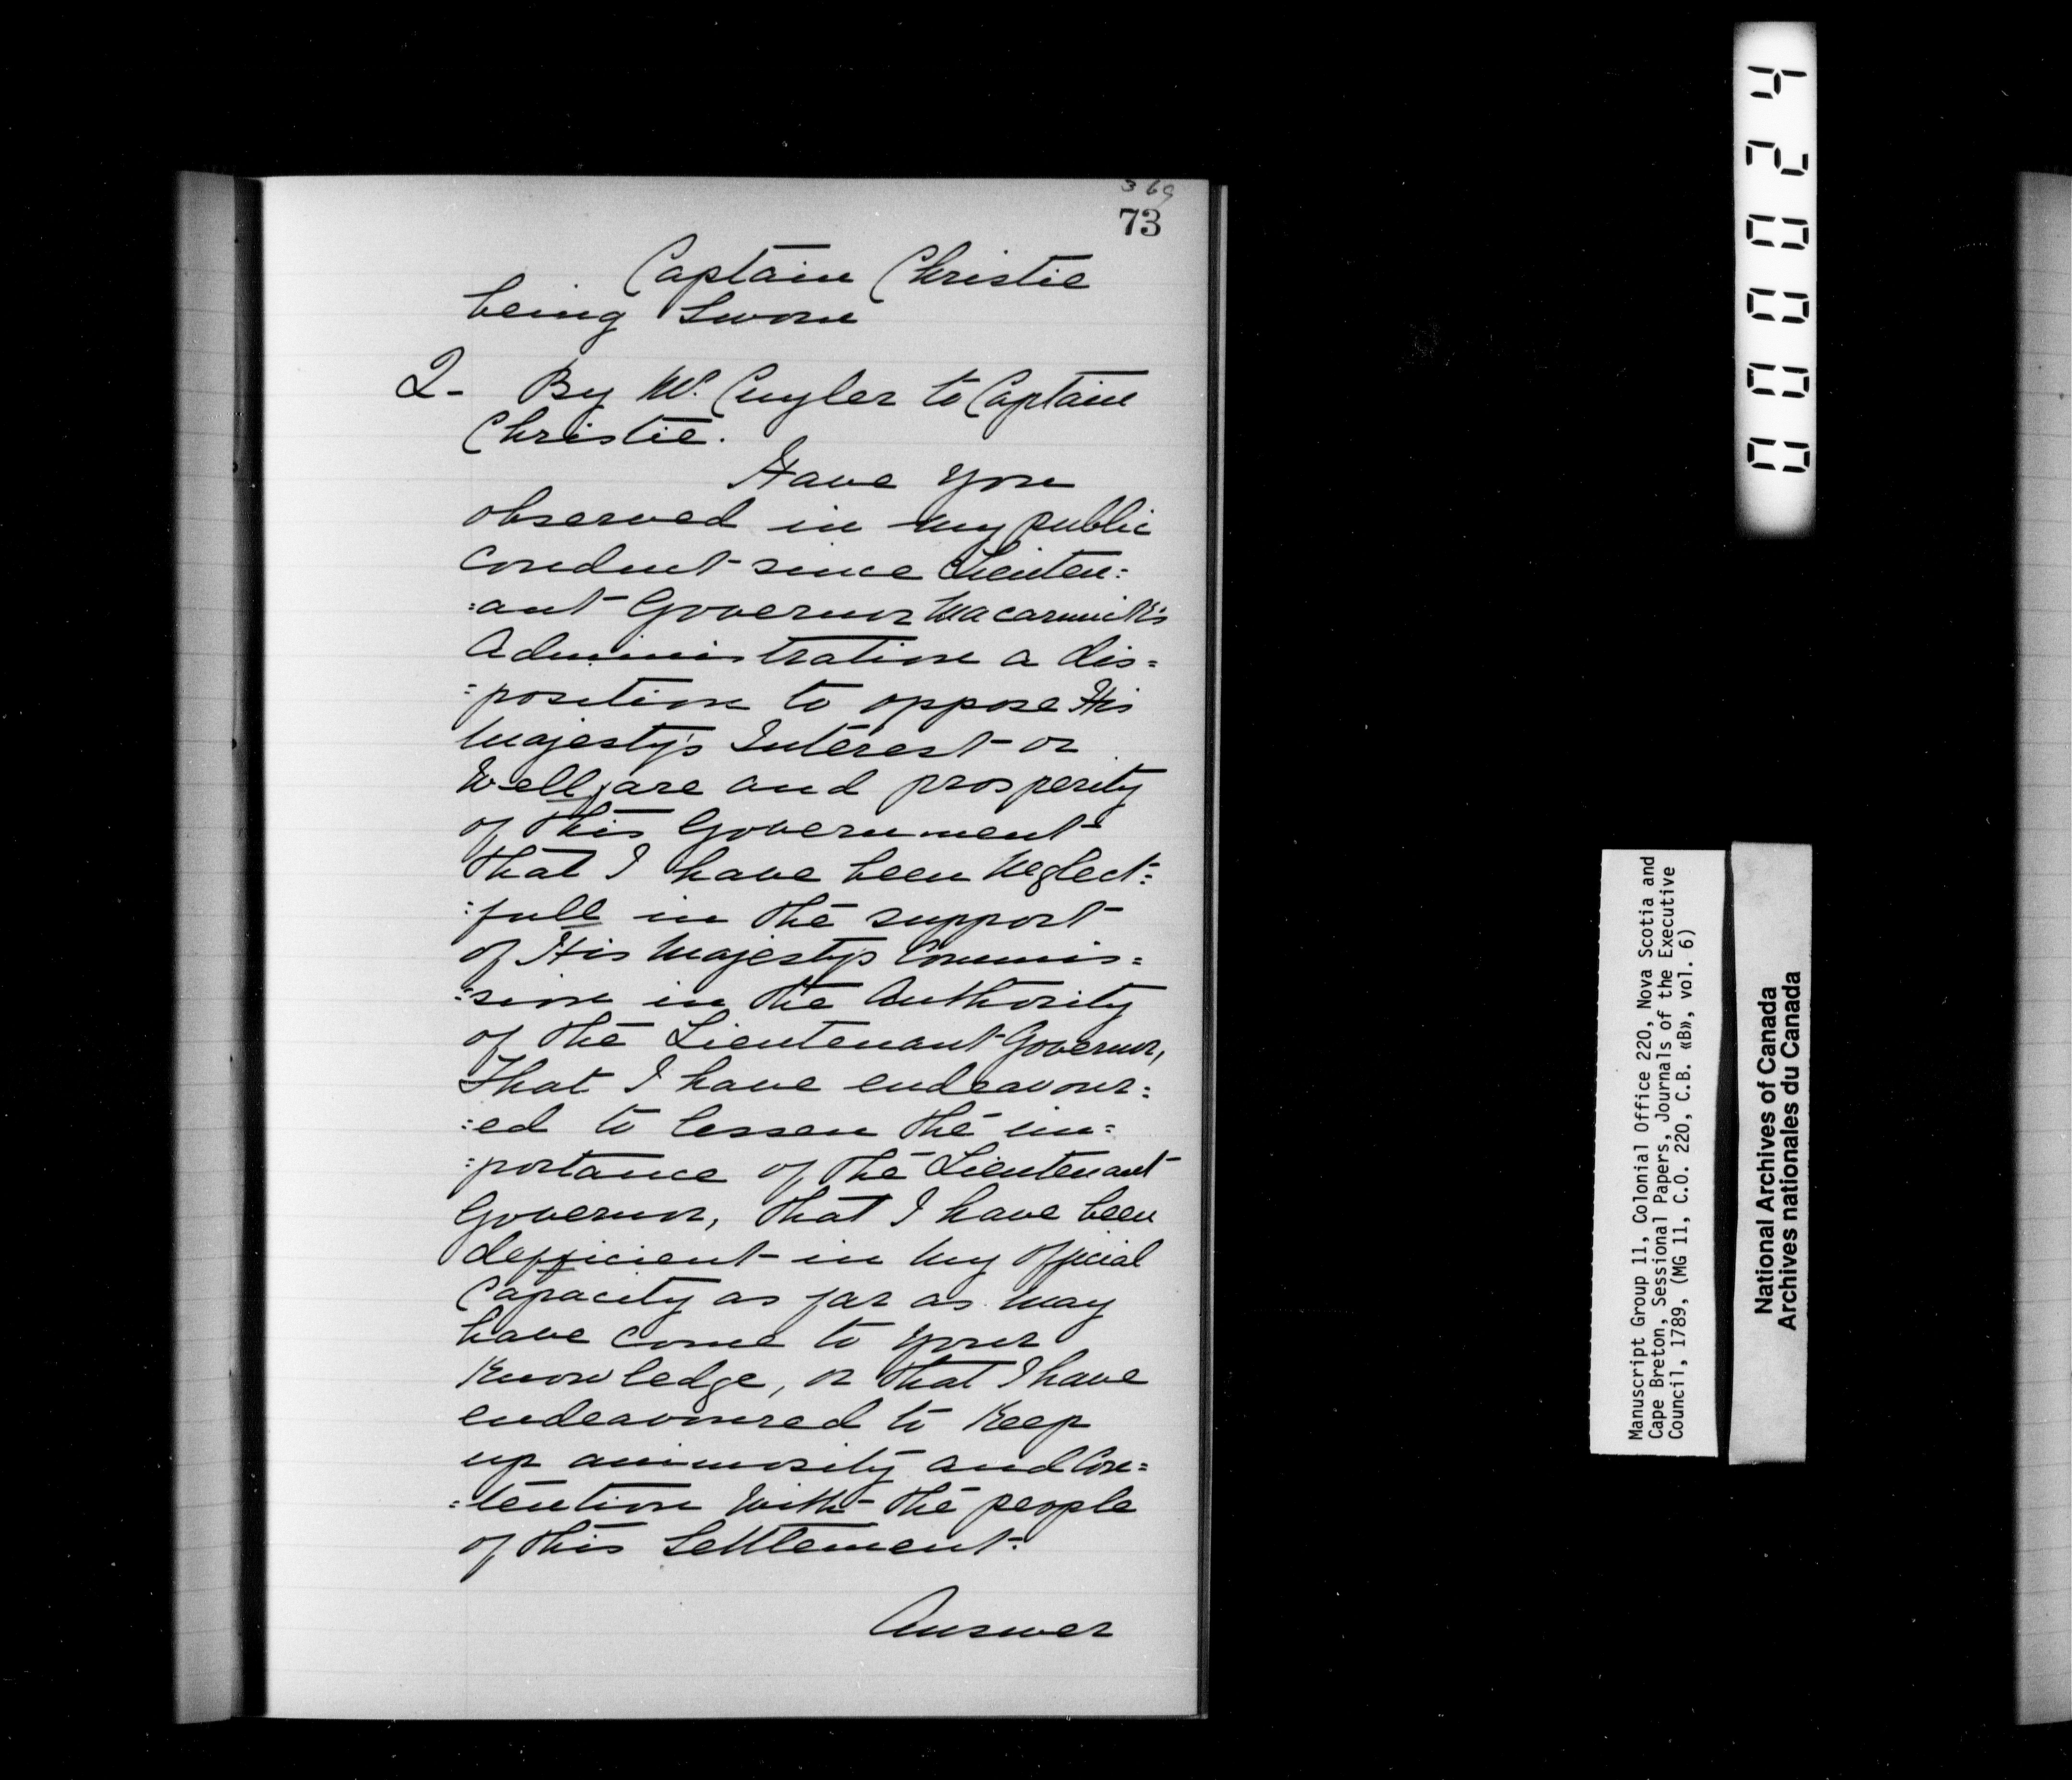 369
73
Captain Christie
being Sworn
Q- By Mr. Cuyler to Captain
Christie.
Have you
observed in my public
conduct since Lieuten=
=ant Governor Macarmick's
Administration a dis=
=position to oppose His
Majesty's Interest or
Wellfare and prosperity
of this Government
that I have been neglect=
=full in the support
of His Majesty's Commis=
=sion in the Authority
of the Lieutenant Governor,
That I have endeavour=
=ed to lessen the im=
=portance of the Lieutenant
Governor, that I have been
defficient in my official
Capacity as far as may
have come to your
Knowledge, or that I have
endeavoured to Keep
up animosity and Con=
=tention with the people
of this Settlement.
Answer
000024
Manuscript Group 11, Colonial Office 220, Nova Scotia and
Cape Breton, Sessional Papers, Journals of the Executive
Council, 1789, (MG 11, C.O. 220, C.B. «B», vol. 6)
National Archives of Canada
Archives nationales du Canada